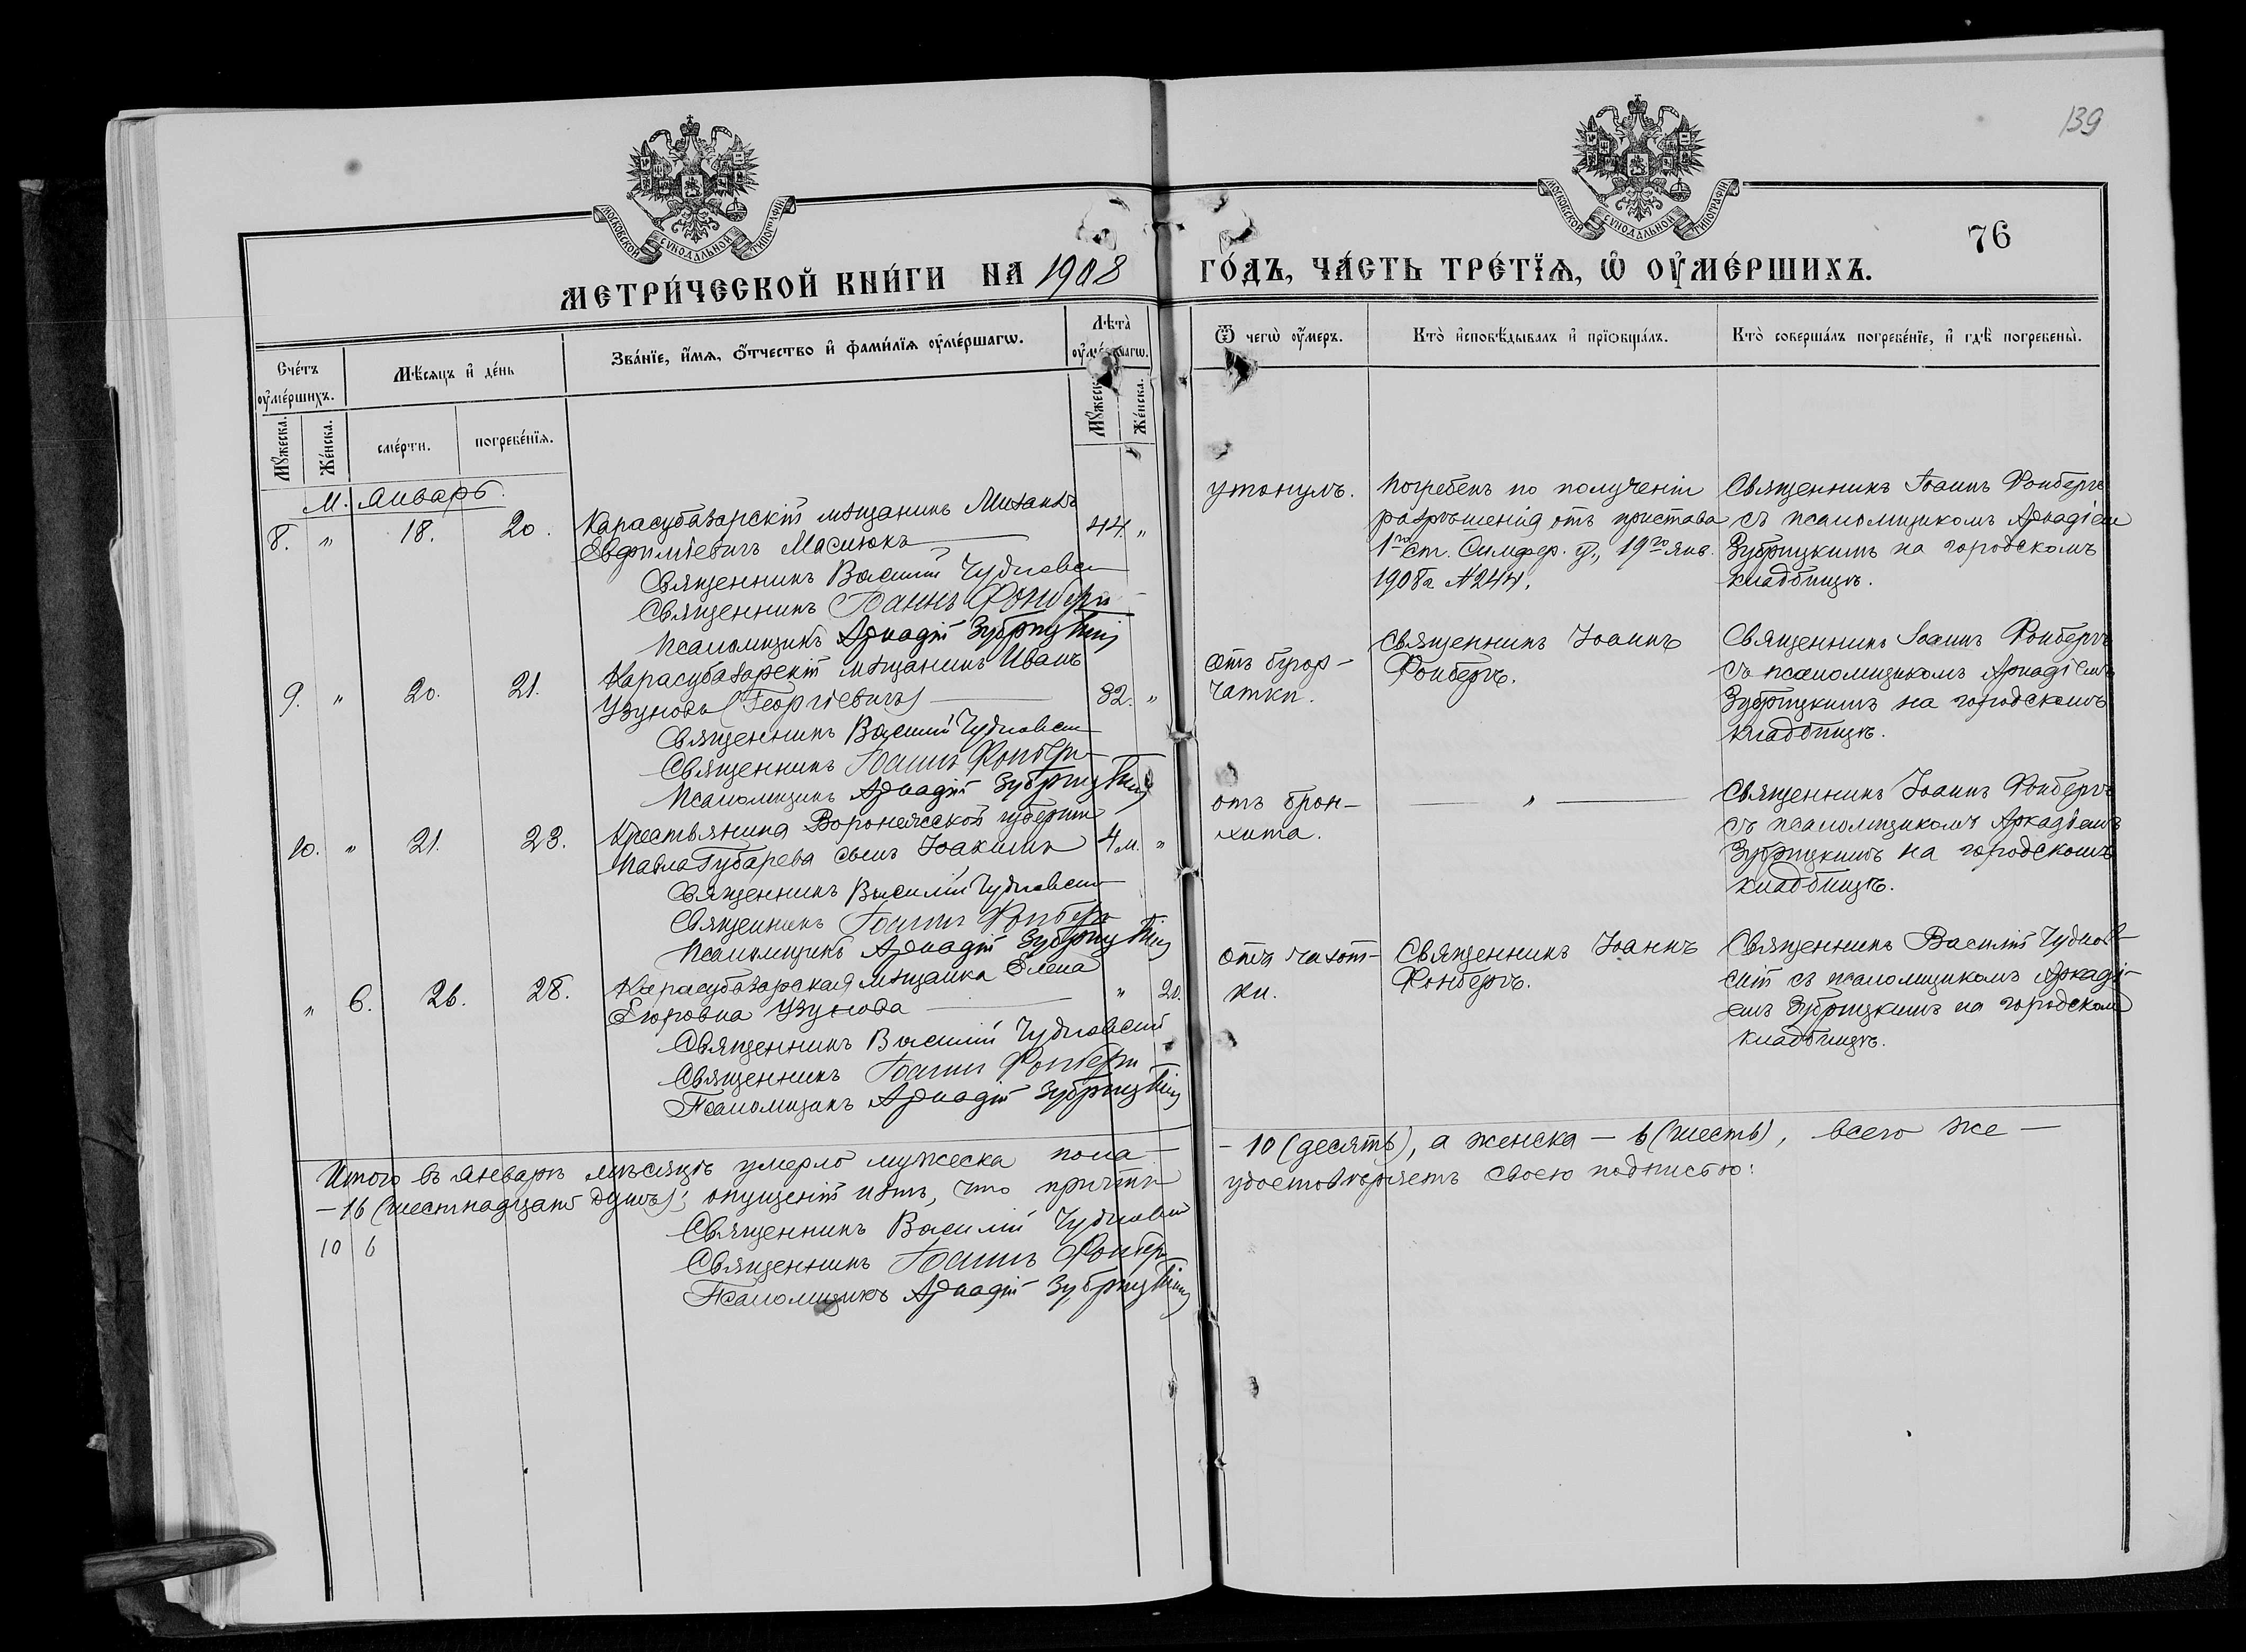 139
МОСКОВСКОЙ СѴНОДАЛЬНОЙ ТИПОГРАФІИ
МОСКОВСКОЙ СѴНОДАЛЬНОЙ ТИПОГРАФІИ
76
МЕТРИ́ЧЕСКОЙ КНИ́ГИ НА 1908 ГО́ДЪ, ЧА́СТЬ ТРЕ́ТЇѦ, Ѡ҆ ОУ҆МЕ́РШИХЪ.
Сче́тъ оу҆ме́ршихъ.
Мѣ́сяцъ и҆ де́нь
Зва́нїе, и҆́мѧ, ѻ҆́тчество и҆ фами́лїѧ оу҆ме́ршагѡ.
Лѣ́та оу҆ме́ршагѡ.
Ѿ чегѡ̀ оу҆́меръ.
Кто̀ и҆сповѣ́дывалъ и҆ прїѻбща́лъ.
Кто̀ соверша́лъ погребе́нїе, и҆ гдѣ̀ погребены̀.
Мꙋ́жеска.
Же́нска.
сме́рти.
погребе́нїѧ.
Мꙋ́жеска.
Же́нска.
М. Январь.
8. " 18. 20. Карасубазарскій мѣщанинъ Михаилъ 44. "
Евфиміевичъ Масюкъ
Священникъ Василій Чудновскій
Священникъ Іоаннъ Фонберъ
Псаломщикъ Аркадій Зубрицкій
утонулъ.
Погребенъ по полученіи
разрѣшенія отъ пристава
1го ст. Симфер. у., 19го янв.
1908 г. № 244.
Священникъ Іоаннъ Фонберъ
съ псаломщикомъ Аркадіемъ
Зубрицкимъ на городскомъ
кладбищѣ.
9. " 20. 21. Карасубазарскій мѣщанинъ Иванъ 32. "
Узуновъ (Георгіевичъ)
Священникъ Василій Чудновскій
Священникъ Іоаннъ Фонберъ
Псаломщикъ Аркадій Зубрицкій
отъ бугор-
чатки.
Священникъ Іоаннъ
Фонберъ.
Священникъ Іоаннъ Фонберъ
съ псаломщикомъ Аркадіемъ
Зубрицкимъ на городскомъ
кладбищѣ.
10. " 21. 23. Крестьянина Воронежской губерніи 4 м. "
Павла Губарева сынъ Іоакимъ
Священникъ Василій Чудновскій
Священникъ Іоаннъ Фонберъ
Псаломщикъ Аркадій Зубрицкій
отъ брон-
хита.
— " —
Священникъ Іоаннъ Фонберъ
съ псаломщикомъ Аркадіемъ
Зубрицкимъ на городскомъ
кладбищѣ.
" 6. 26. 28. Карасубазарская мѣщанка Елена " 20.
Егоровна Узунова
Священникъ Василій Чудновскій
Священникъ Іоаннъ Фонберъ
Псаломщикъ Аркадій Зубрицкій
отъ чахот-
ки.
Священникъ Іоаннъ
Фонберъ.
Священникъ Василій Чуднов-
скій съ псаломщикомъ Аркаді-
емъ Зубрицкимъ на городскомъ
кладбищѣ.
Итого въ январѣ мѣсяцѣ умерло мужеска пола — 10 (десять), а женска — 6 (шесть), всего же —
— 16 (шестнадцать душъ); опущеній нѣтъ, что причтъ удостовѣряетъ своею подписью:
10 6
Священникъ Василій Чудновскій
Священникъ Іоаннъ Фонберъ
Псаломщикъ Аркадій Зубрицкій